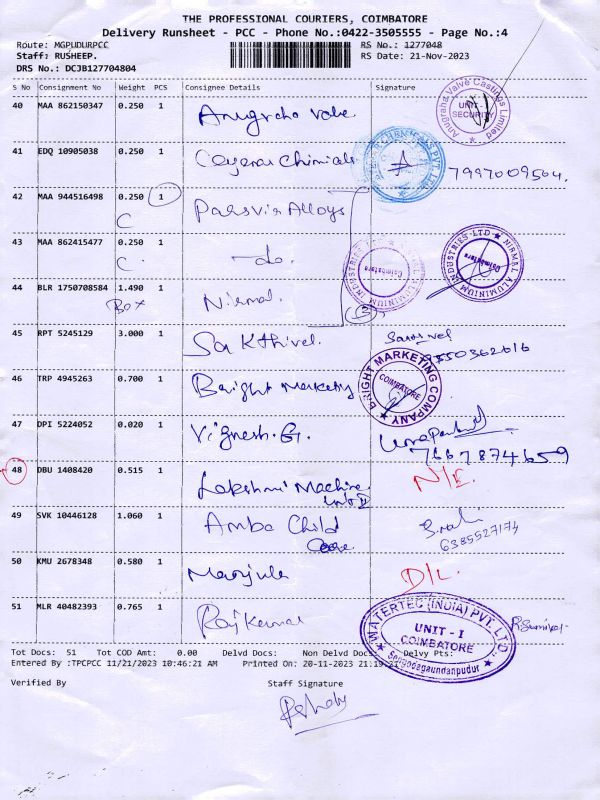 THE PROFESSIONAL COURIERS, COIMBATORE
Delivery Runsheet - PCC - Phone No.:0422-3505555 - Page No.:4
Route: MGPUDURPCC
Staff: RUSHEEP.
DRS No.: DCJB127704804
RS No.: 1277048
RS Date: 21-Nov-2023
S No Consignment No Weight PCS Consignee Details Signature
40 MAA 862150347 0.250 1 Anugraha valve
Anugraha Valve Castings Limited UNIT- SECURITY
41 EDQ 10905038 0.250 1 Chimials
7997009504.
42 MAA 944516498 0.250 1 Parsvia Alloys
C
43 MAA 862415477 0.250 1 do.
C.
INDUSTRIES LTD Coimbatore
NIRMAL ALUMINIUM INDUSTRIES LTD Coimbatore
44 BLR 1750708584 1.490 1 Nirmal.
Box
45 RPT 5245129 3.000 1 Sakthivel.
46 TRP 4945263 0.700 1 Bright Marketing
BRIGHT MARKETING COMPANY COIMBATORE
47 DPI 5224052 0.020 1 Vignesh. G.
7667874659
48 DBU 1408420 0.515 1 Lakshmi Machine
Unit II
N/E
49 SVK 10446128 1.060 1 Amba Child
Care
6385527174
50 KMU 2678348 0.580 1 Manjula
D/L
51 MLR 40482393 0.765 1 Rajkumar
WATERTEC (INDIA) PVT. LTD. UNIT - I COIMBATORE
Tot Docs: 51 Tot COD Amt: 0.00 Delvd Docs: Non Delvd Docs: Delvy Pts:
Entered By :TPCPCC 11/21/2023 10:46:21 AM Printed On: 20-11-2023 21:19
Verified By Staff Signature